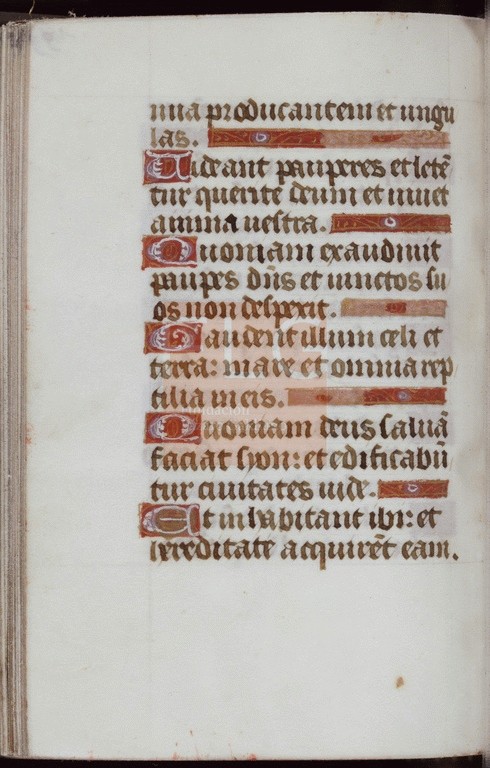 nua producantem et ungu
las.
Uideant pauperes et letē
tur querite deum et uiuet
anima uestra.
Quoniam exaudiuit
paupes dn̄s et uinctos su
os non despexit.
Laudent illum celi et
terra: mare et omnia rep
tilia in eis.
Quoniam deus saluā
faciat syon: et edificabū
tur ciuitates iude.
Et inhabitant ibi: et
hereditate acquirēt eam.